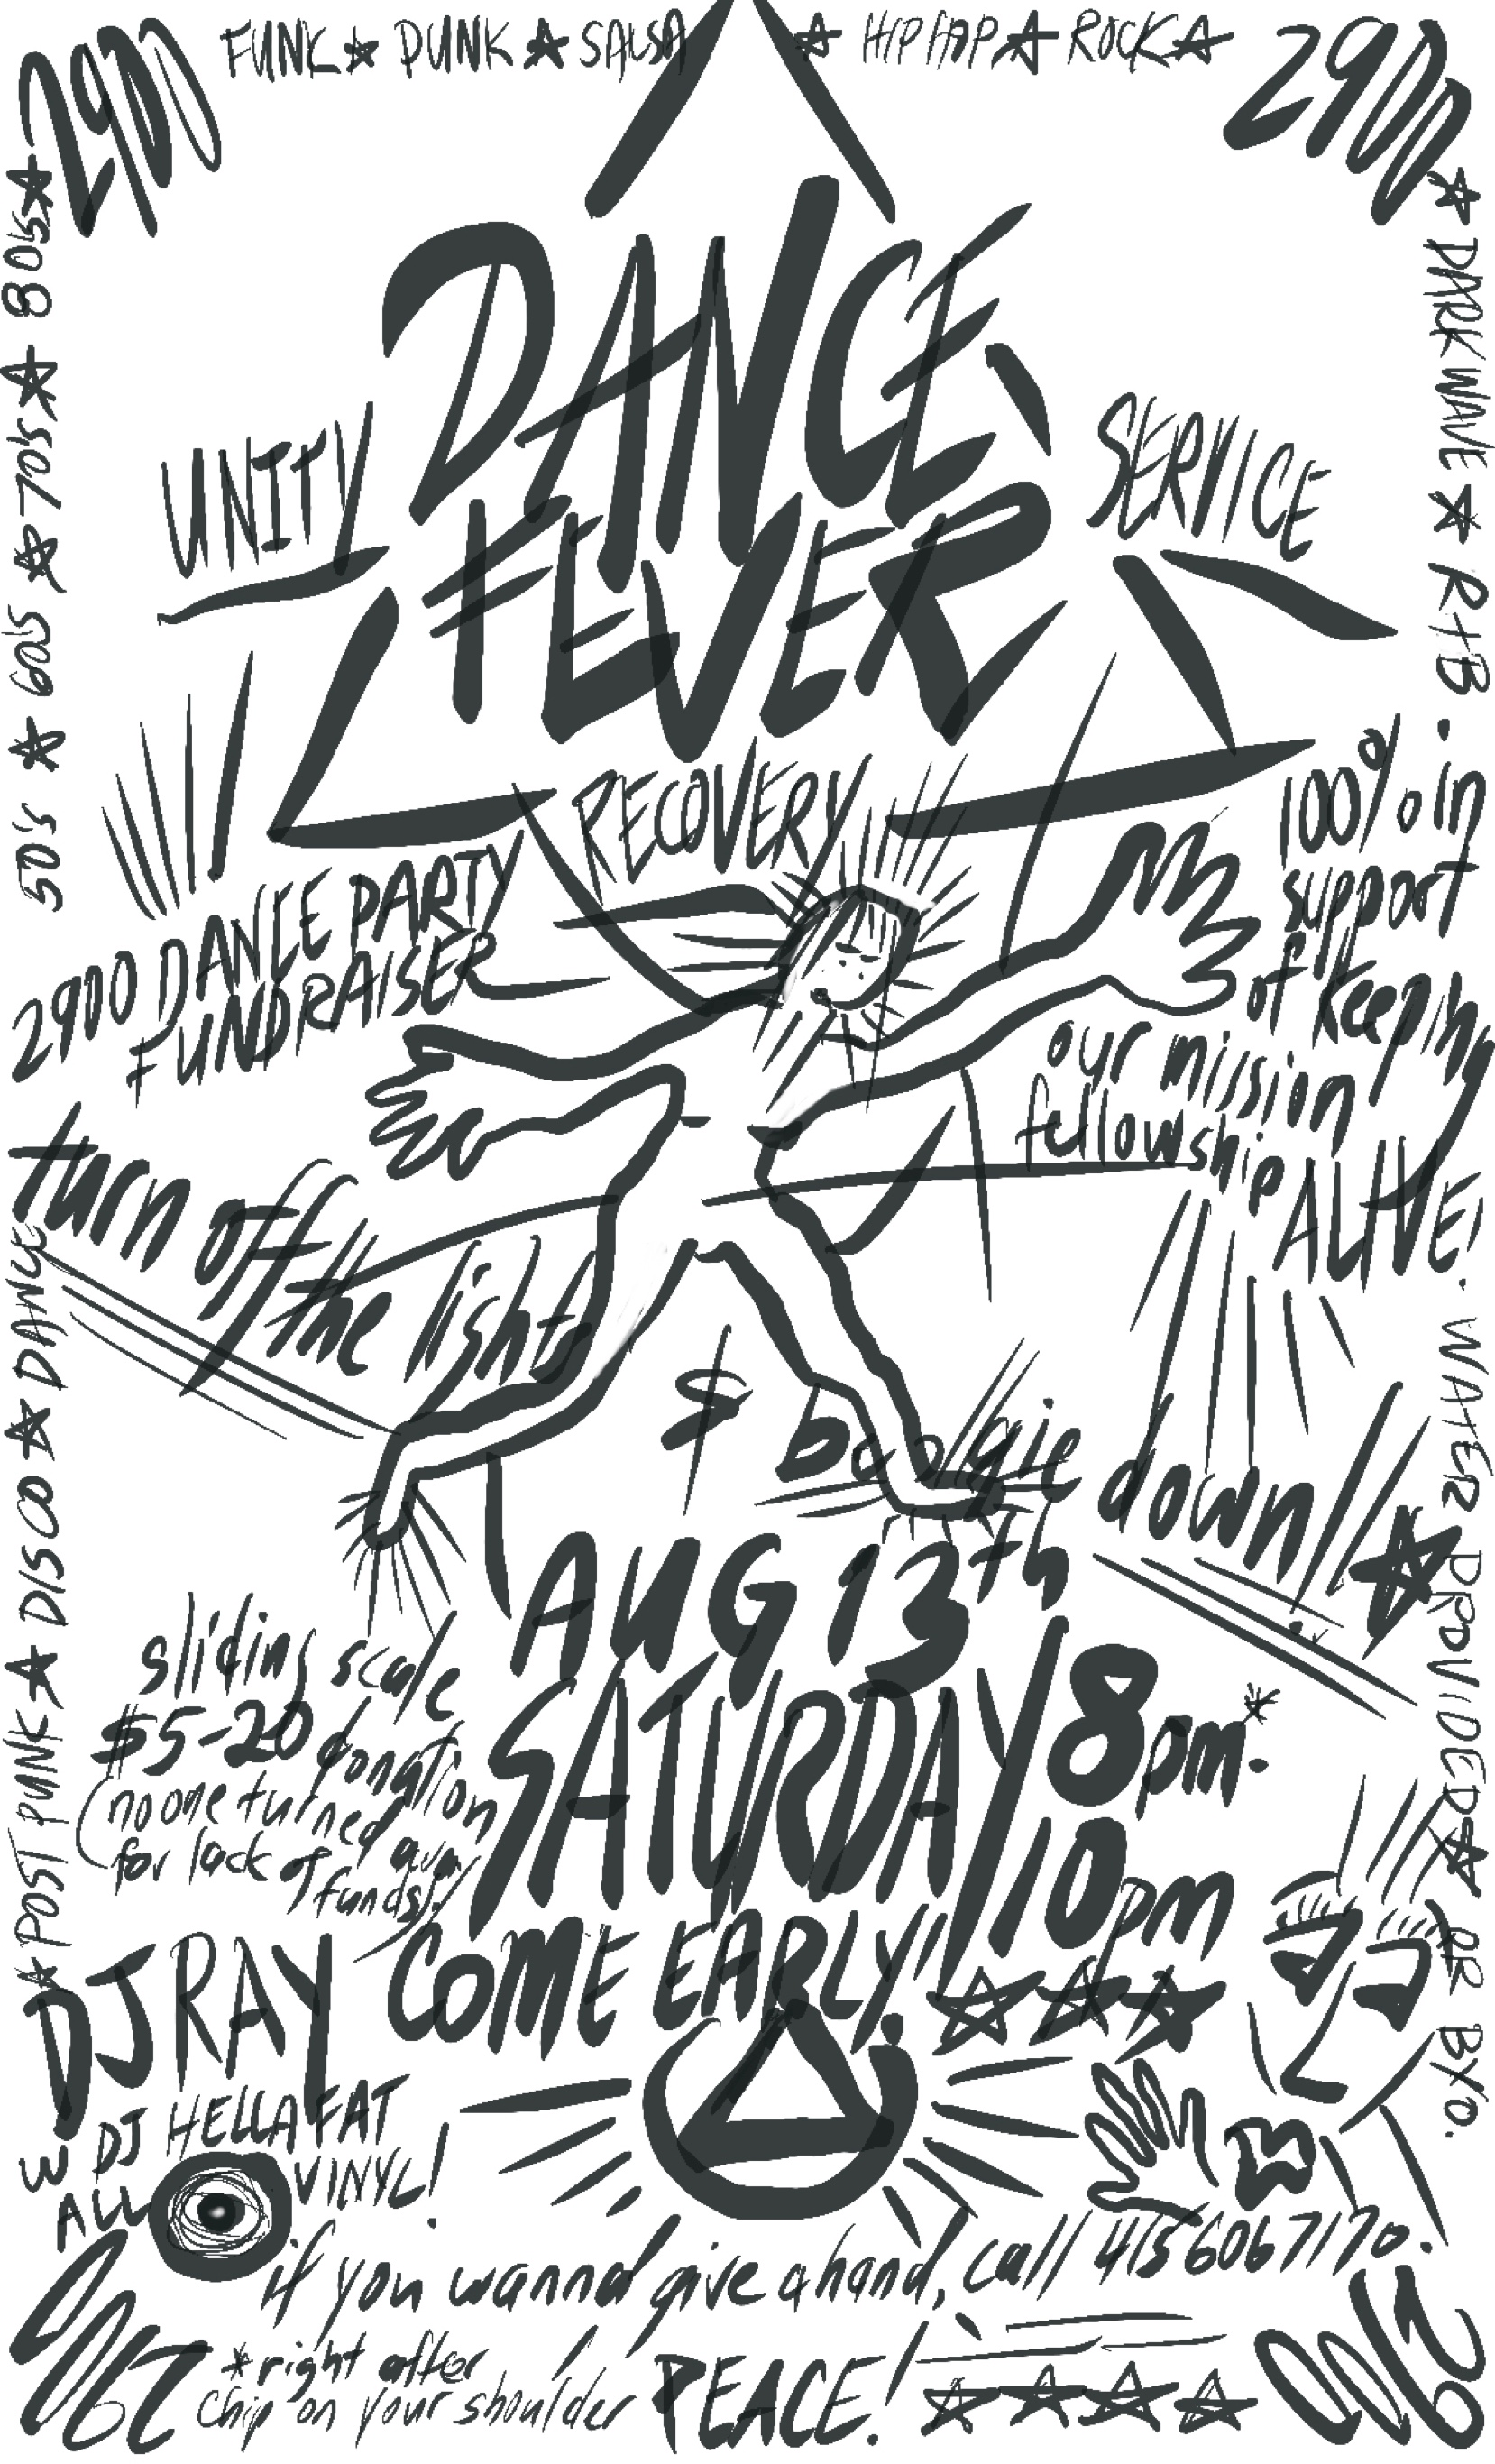 2900
FUNK ☆ PUNK ☆ SALSA ☆ HIP HOP ☆ ROCK ☆
2900
50's ☆ 60s ☆ 70's ☆ 80s ☆
☆ DARK WAVE ☆ R+B.
DANCE
FEVER
UNITY
SERVICE
RECOVERY
2900 DANCE PARTY
FUNDRAISER
100% in
support
of keeping
our mission
fellowship
ALIVE!
turn off
the lights
& boogie
down!!
☆ POST PUNK ☆ DISCO ☆ DANCE
WATER PROVIDED ☆ OR BYO.
AUG 13th
SATURDAY
8pm*-
10pm
sliding scale
$5-20 donation
(no one turned away
for lack of
funds!)
COME EARLY!!
DJ RAY
DJ HELLA FAT
ALL VINYL!
if you wanna give a hand, call 415 606 7170.
*right after
chip on your shoulder
PEACE!
2900
2900